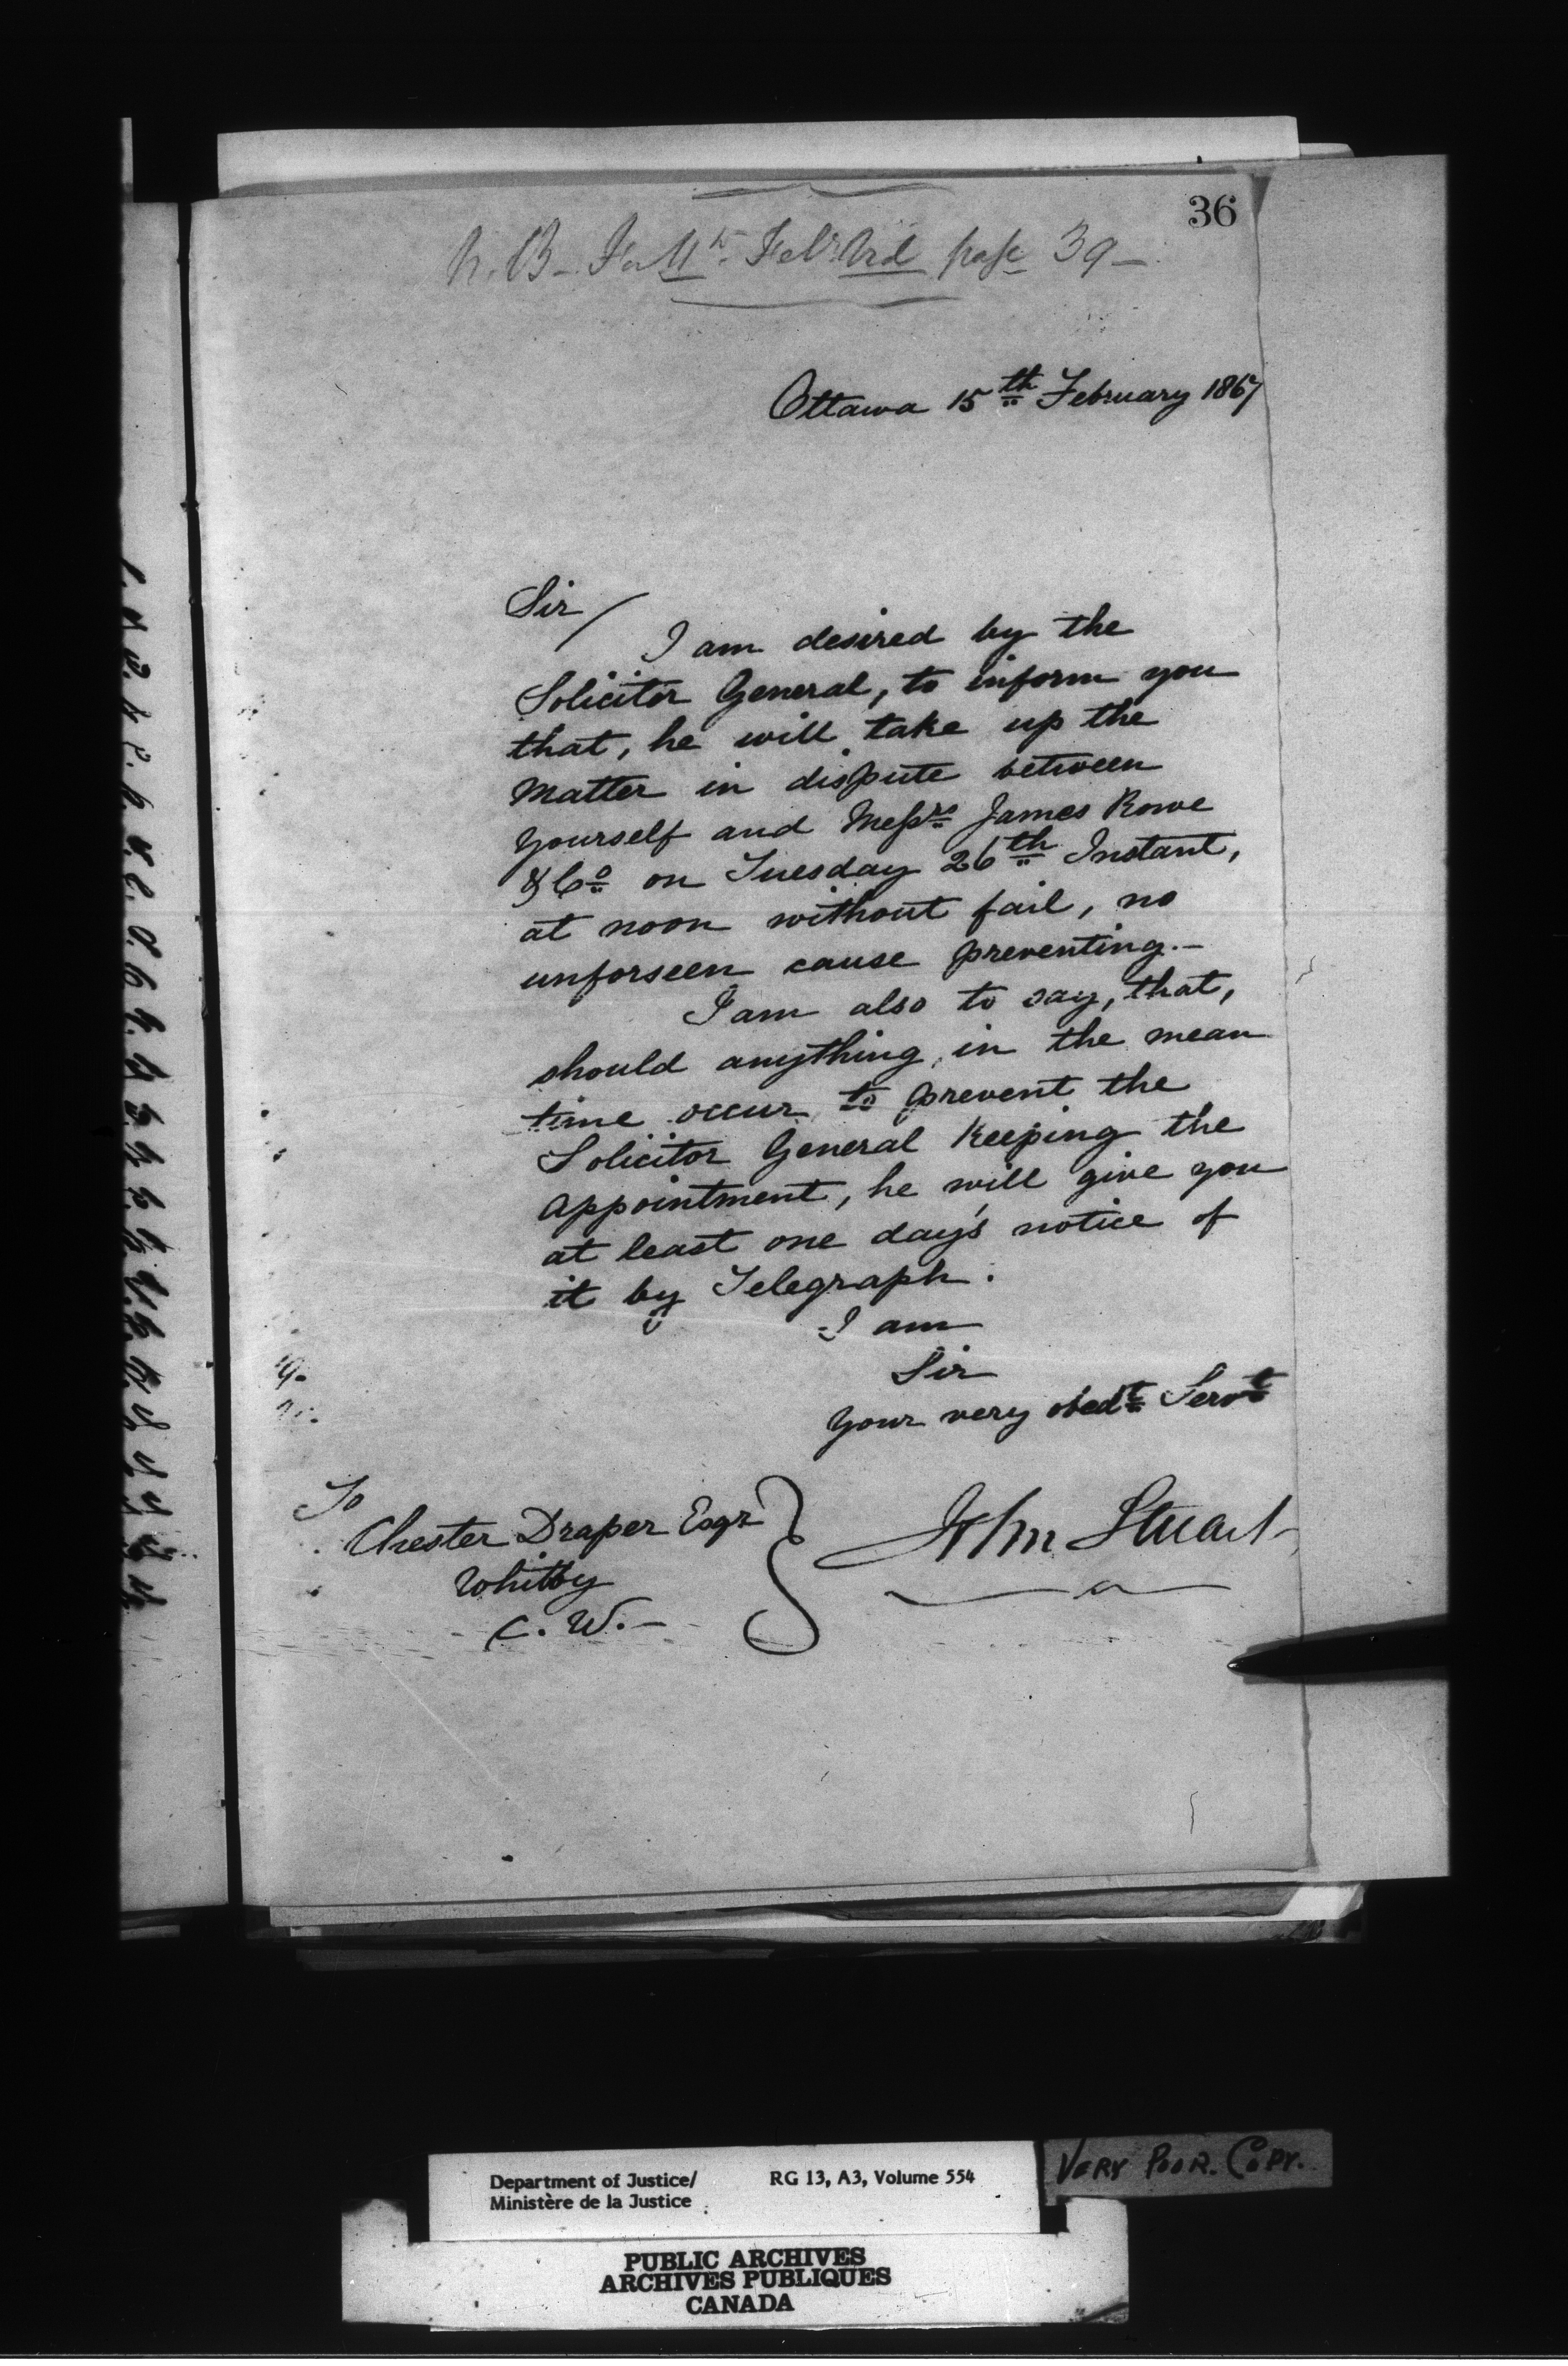 36
N.B. For 11th Feby Vid page 39 —
Ottawa 15th February 1867
Sir/
I am desired by the
Solicitor General, to inform you
that, he will take up the
Matter in dispute between
yourself and Messrs James Rowe
& Co on Tuesday 26th Instant,
at noon without fail, no
unforseen cause preventing.—
I am also to say, that,
should anything, in the mean
time occur, to prevent the
Solicitor General Keeping the
appointment, he will give you
at least one day's notice of
it by Telegraph.
I am
Sir
Your very obedt Servt
John Stuart
To
Chester Draper Esqr
Whitby
C. W.—
Department of Justice/
Ministère de la Justice
RG 13, A3, Volume 554
VERY POOR. COPY.
PUBLIC ARCHIVES
ARCHIVES PUBLIQUES
CANADA